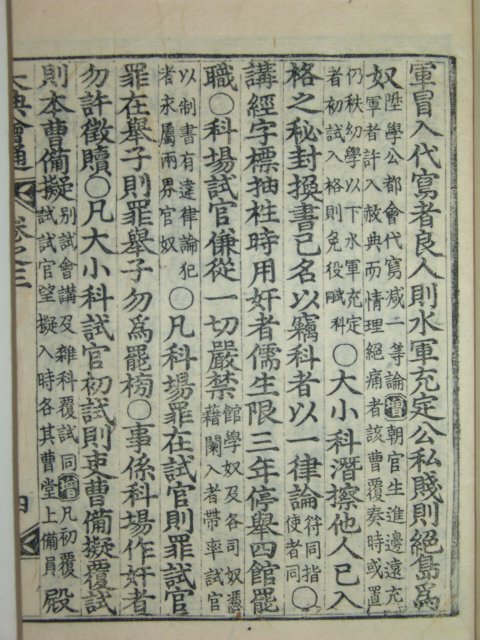 軍冒入代寫者良人則水軍充定公私賤則絕島爲
奴
陞學公都會代寫减二等論增朝官生進邊遠充
軍者許入赦典而情理絕痛者該曹覆奏時或置
仍秩幼學以下水軍充定
者初試入格則免役賦科
○大小科潛擦他人已入
格之秘封換書己名以竊科者以一律論
符同指
使者同
○
講經字標抽柱時用奸者儒生限三年停擧四館罷
職○科場試官傔從一切嚴禁
館學奴及各司奴憑
藉闌入者帶率試官
以制書有違律論犯
者永屬兩界官奴
○凡科場罪在試官則罪試官
罪在擧子則罪擧子勿爲罷榜○事係科場作奸者
勿許徵贖○凡大小科試官初試則吏曹備擬覆試
則本曹備擬
別試會講及雜科覆試同增凡初覆
試試官望擬入時各其曹堂上備員
殿
大典會通
卷之三
四